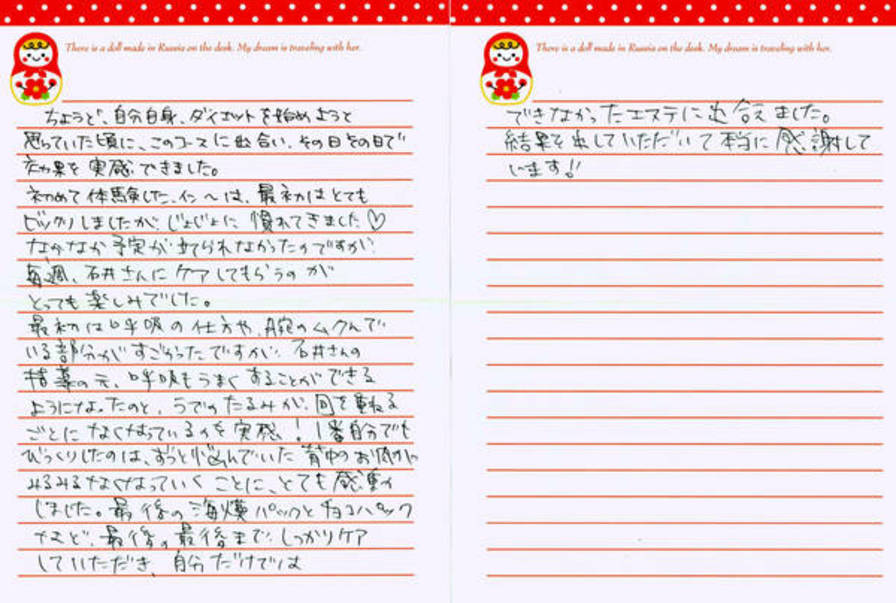 There is a doll made in Russia on the desk. My dream is traveling with her.
ちょうど、自分自身、ダイエットを始めようと
思っていた頃に、このコースに出合い、その日その日で
効果を実感できました。
初めて体験した、インへは、最初はとても
ビックリしましたが、じょじょに慣れてきました♡
なかなか予定が立てられなかったのですが、
毎週、石井さんにケアしてもらうのが
とっても楽しみでした。
最初は呼吸の仕方や、腕のムクんで
いる部分がすごかったですが、石井さんの
指導の元、呼吸もうまくすることができる
ようになったのと、うでのたるみが、回を重ねる
ごとになくなっているのを実感!1番自分でも
びっくりしたのは、ずっと悩んでいた背中のお肉が
みるみるなくなっていくことに、とても感動
しました。最後の海藻パックとチョコパック
など、最後の最後まで、しっかりケア
していただき、自分だけでは
There is a doll made in Russia on the desk. My dream is traveling with her.
できなかったエステに出合えました。
結果を出していただいて本当に感謝して
います!!